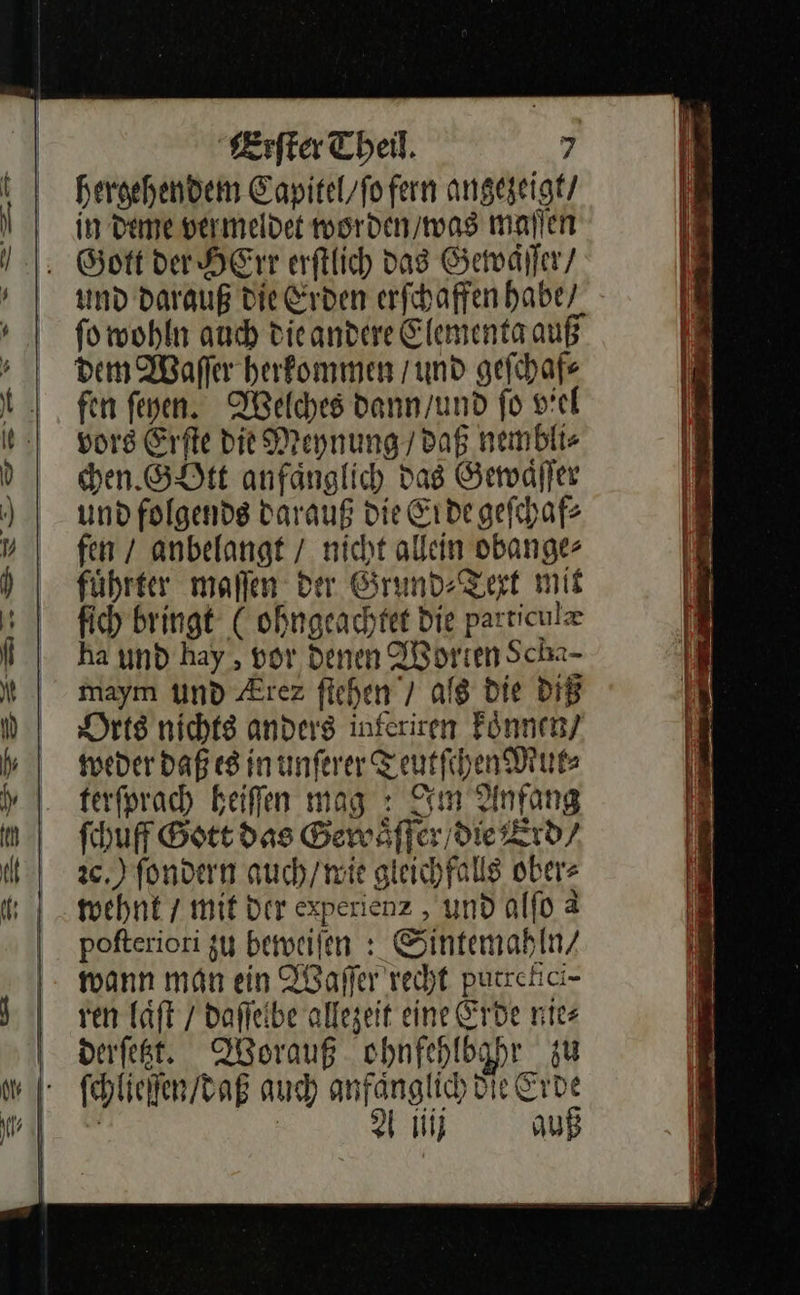 Erſter Theil. 7
hergehendem Capitel/ſo fern angezeigt/
in deme vermeldet worden/was maſſen
Gott der HErr erſtlich das Gewåſſer/
und darauß die Erden erſchaffen habe/
ſo wohln auch die andere Elementa auß
dem Waſſer herkommen / und geſchaf⸗
fen ſeyen. Welches dann/und ſo viel
vors Erſte die Meynung / daß nembli⸗
chen GOtt anfånglich das Gewåſſer
und folgends darauß die Erde geſchaf⸗
fen / anbelangt / nicht allein obange⸗
fůhrter maſſen der Grund⸗Text mit
ſich bringt ( ohngeachtet die particulæ
ha und hay, vor denen Worten Scha-
maym und Ærez ſtehen / als die diß
Orts nichts anders inferiren kônnen/
weder daß es in unſerer Teutſchen Mut⸗
terſprach heiſſen mag : Im Anfang
ſchuff Gott das Gewåſſer/die Erd/
ꝛc.) ſondern auch/wie gleichfalls ober⸗
wehnt / mit der experienz, und alſo à
poſteriori zu beweiſen : Sintemahln/
wann man ein Waſſer recht putrefici-
ren låſt / daſſelbe allezeit eine Erde nie⸗
derſetzt. Worauß ohnfehlbahr zu
ſchlieſſen/daß auch anfånglich die Erde
A iiij auß